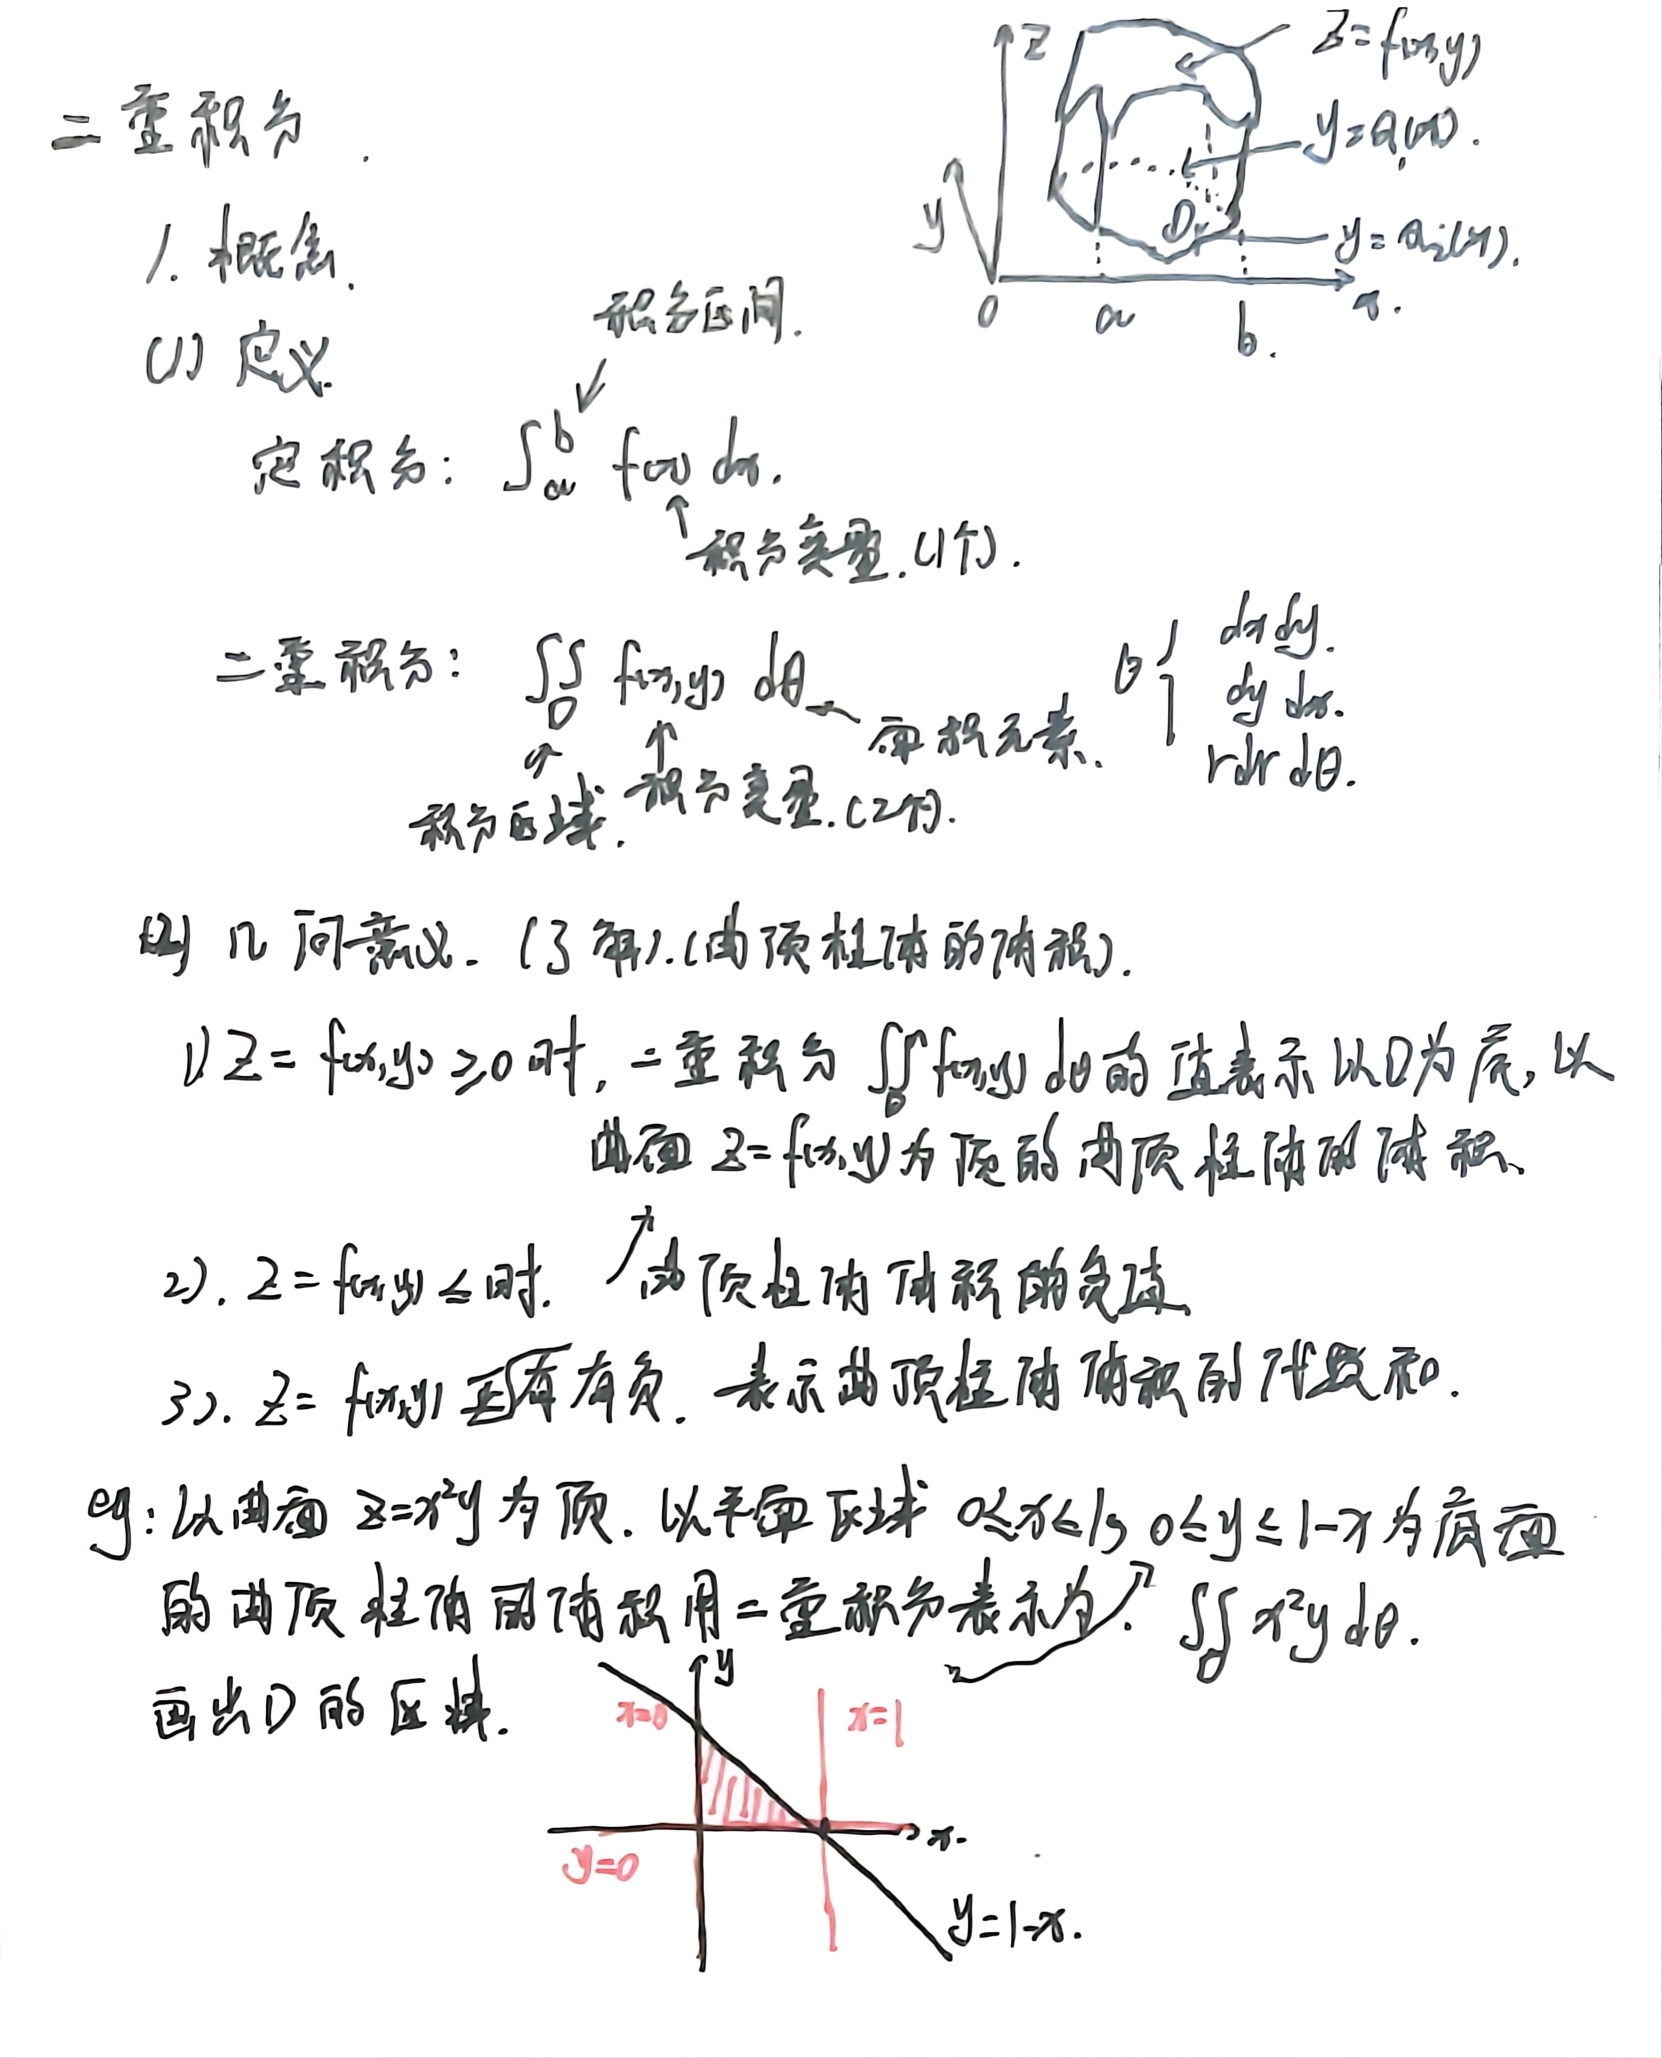 二重积分.
z
z=f(x,y)
y=φ₁(x).
y
D
y=φ₂(x).
0 a b. x.
1. 概念.
(1) 定义.
积分区间.
定积分: ∫ₐᵇ f(x) dx.
积分变量.(1个).
二重积分: ∬_D f(x,y) dθ
面积元素.
θ { dxdy.
dy dx.
rdr dθ.
积分区域.
积分变量.(2个).
(2) 几何意义. (了解).(曲顶柱体的体积).
1) Z=f(x,y)≥0时, 二重积分 ∬_D f(x,y) dθ的值表示以D为底, 以
曲面 Z=f(x,y)为顶的曲顶柱体的体积.
2). Z=f(x,y)≤时. 曲顶柱体体积的负值.
3). Z=f(x,y) 有正有负. 表示曲顶柱体体积的代数和.
eg: 以曲面 z=x²y 为顶. 以平面区域 0≤x≤1, 0≤y≤1-x 为底面
的曲顶柱体的体积用二重积分表示为. ∬_D x²y dθ.
画出D的区域.
y
x=0
x=1
x.
y=0
y=1-x.